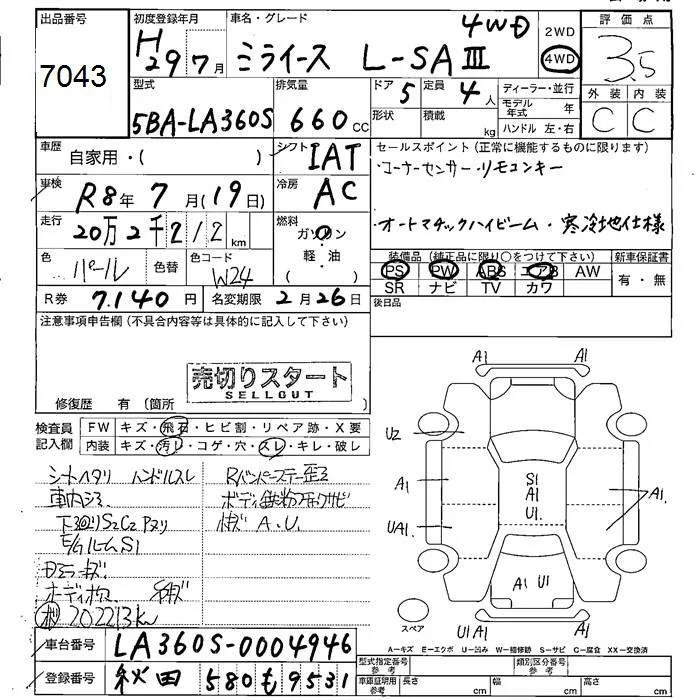 出品番号
7043
初度登録年月
H29年7月
車名・グレード
ミライース L-SAⅢ 4WD
2WD
4WD
評価点
3.5
外装 内装
C C
型式
5BA-LA360S
排気量
660cc
ドア 5
定員 4人
形状
積載 kg
ディーラー・並行
モデル年式 年
ハンドル 左・右
車歴
自家用・( )
シフト
IAT
セールスポイント(正常に機能するものに限ります)
・コーナーセンサー・リモコンキー
・オートマチックハイビーム・寒冷地仕様
車検
R8年7月(19日)
冷房
AC
走行
20万2千212km
燃料
ガソリン
軽・油
( )
色
パール
色替
色コード
W24
装備品(純正品に限り○をつけて下さい)
PS PW ABS エアB AW
SR ナビ TV カワ
新車保証書
有・無
R券 7,140円
名変期限 2月26日
後日品
注意事項申告欄(不具合内容等は具体的に記入して下さい)
売切りスタート
SELLOUT
修復歴 有(箇所 )
検査員記入欄
FW キズ・飛石・ヒビ割・リペア跡・X要
内装 キズ・汚れ・コゲ・穴・スレ・キレ・破レ
シートヘタリ ハンドルスレ
車内シミ
下廻りS2C2 Pヌリ
E/GルームS1
202213km
Rバンパーステー歪ミ
ボディ鉄粉
A.U.
A1 A1
U2
A1
UA1.
S1
A1
U1.
A1.
A1 U1
U1A1
A1
スペア
A-キズ E-エクボ U-凹み W-補修跡 S-サビ C-腐食 XX-交換済
車台番号
LA360S-0004946
登録番号
秋田 580 も 9531
型式指定番号 参考
類別区分番号 参考
車庫証明用 参考
長さ cm
幅 cm
高さ cm